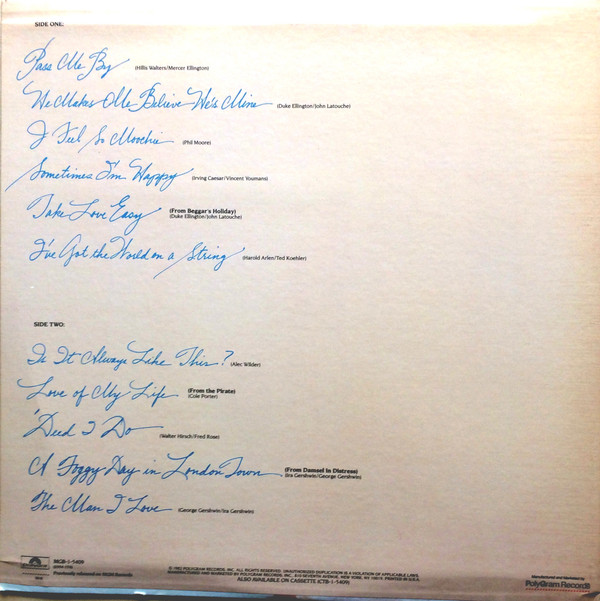 SIDE ONE:
Pass Me By (Hillis Walters/Mercer Ellington)
He Makes Me Believe He's Mine (Duke Ellington/John Latouche)
I Feel So Moochie (Phil Moore)
Sometimes I'm Happy (Irving Caesar/Vincent Youmans)
Take Love Easy (From Beggar's Holiday)
(Duke Ellington/John Latouche)
I've Got the World on a String (Harold Arlen/Ted Koehler)
SIDE TWO:
Is It Always Like This? (Alec Wilder)
Love of My Life (From the Pirate)
(Cole Porter)
'Deed I Do (Walter Hirsch/Fred Rose)
A Foggy Day in London Town (From Damsel In Distress)
(Ira Gershwin/George Gershwin)
The Man I Love (George Gershwin/Ira Gershwin)
MGB-1-5409
Previously released on MGM Records
© 1982 POLYGRAM RECORDS, INC. ALL RIGHTS RESERVED. UNAUTHORIZED DUPLICATION IS A VIOLATION OF APPLICABLE LAWS.
MANUFACTURED AND MARKETED BY POLYGRAM RECORDS, INC. 810 SEVENTH AVENUE, NEW YORK, NY 10019. PRINTED IN U.S.A.
ALSO AVAILABLE ON CASSETTE (CTB-1-5409)
Manufactured and Marketed by
PolyGram Records